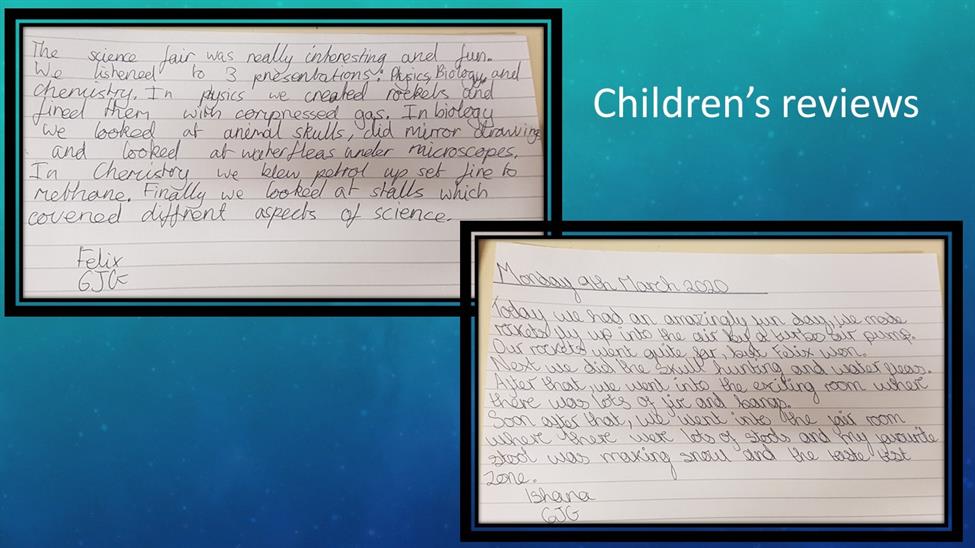 Children's reviews
The science fair was really interesting and fun.
We listened to 3 presentations: Physics, Biology, and
chemistry. In physics we created rockets and
fired them with compressed gas. In biology
we looked at animal skulls, did mirror drawing
and looked at waterfleas under microscopes.
In Chemistry we blew petrol up set fire to
methane. Finally we looked at stalls which
covered diffrent aspects of science.
Felix
GJG
Monday 9th March 2020
Today we had an amazingly fun day, we made
rockets fly up into the air by a turbo air pump.
Our rockets went quite far, but Felix won.
Next we did the skull hunting and water fleas.
After that, we went into the exiting room where
there was lots of fir and bangs.
Soon after that, we went into the fair room
where there were lots of stools and my favourite
stool was making snow and the taste test
zone.
Ishana
GJG